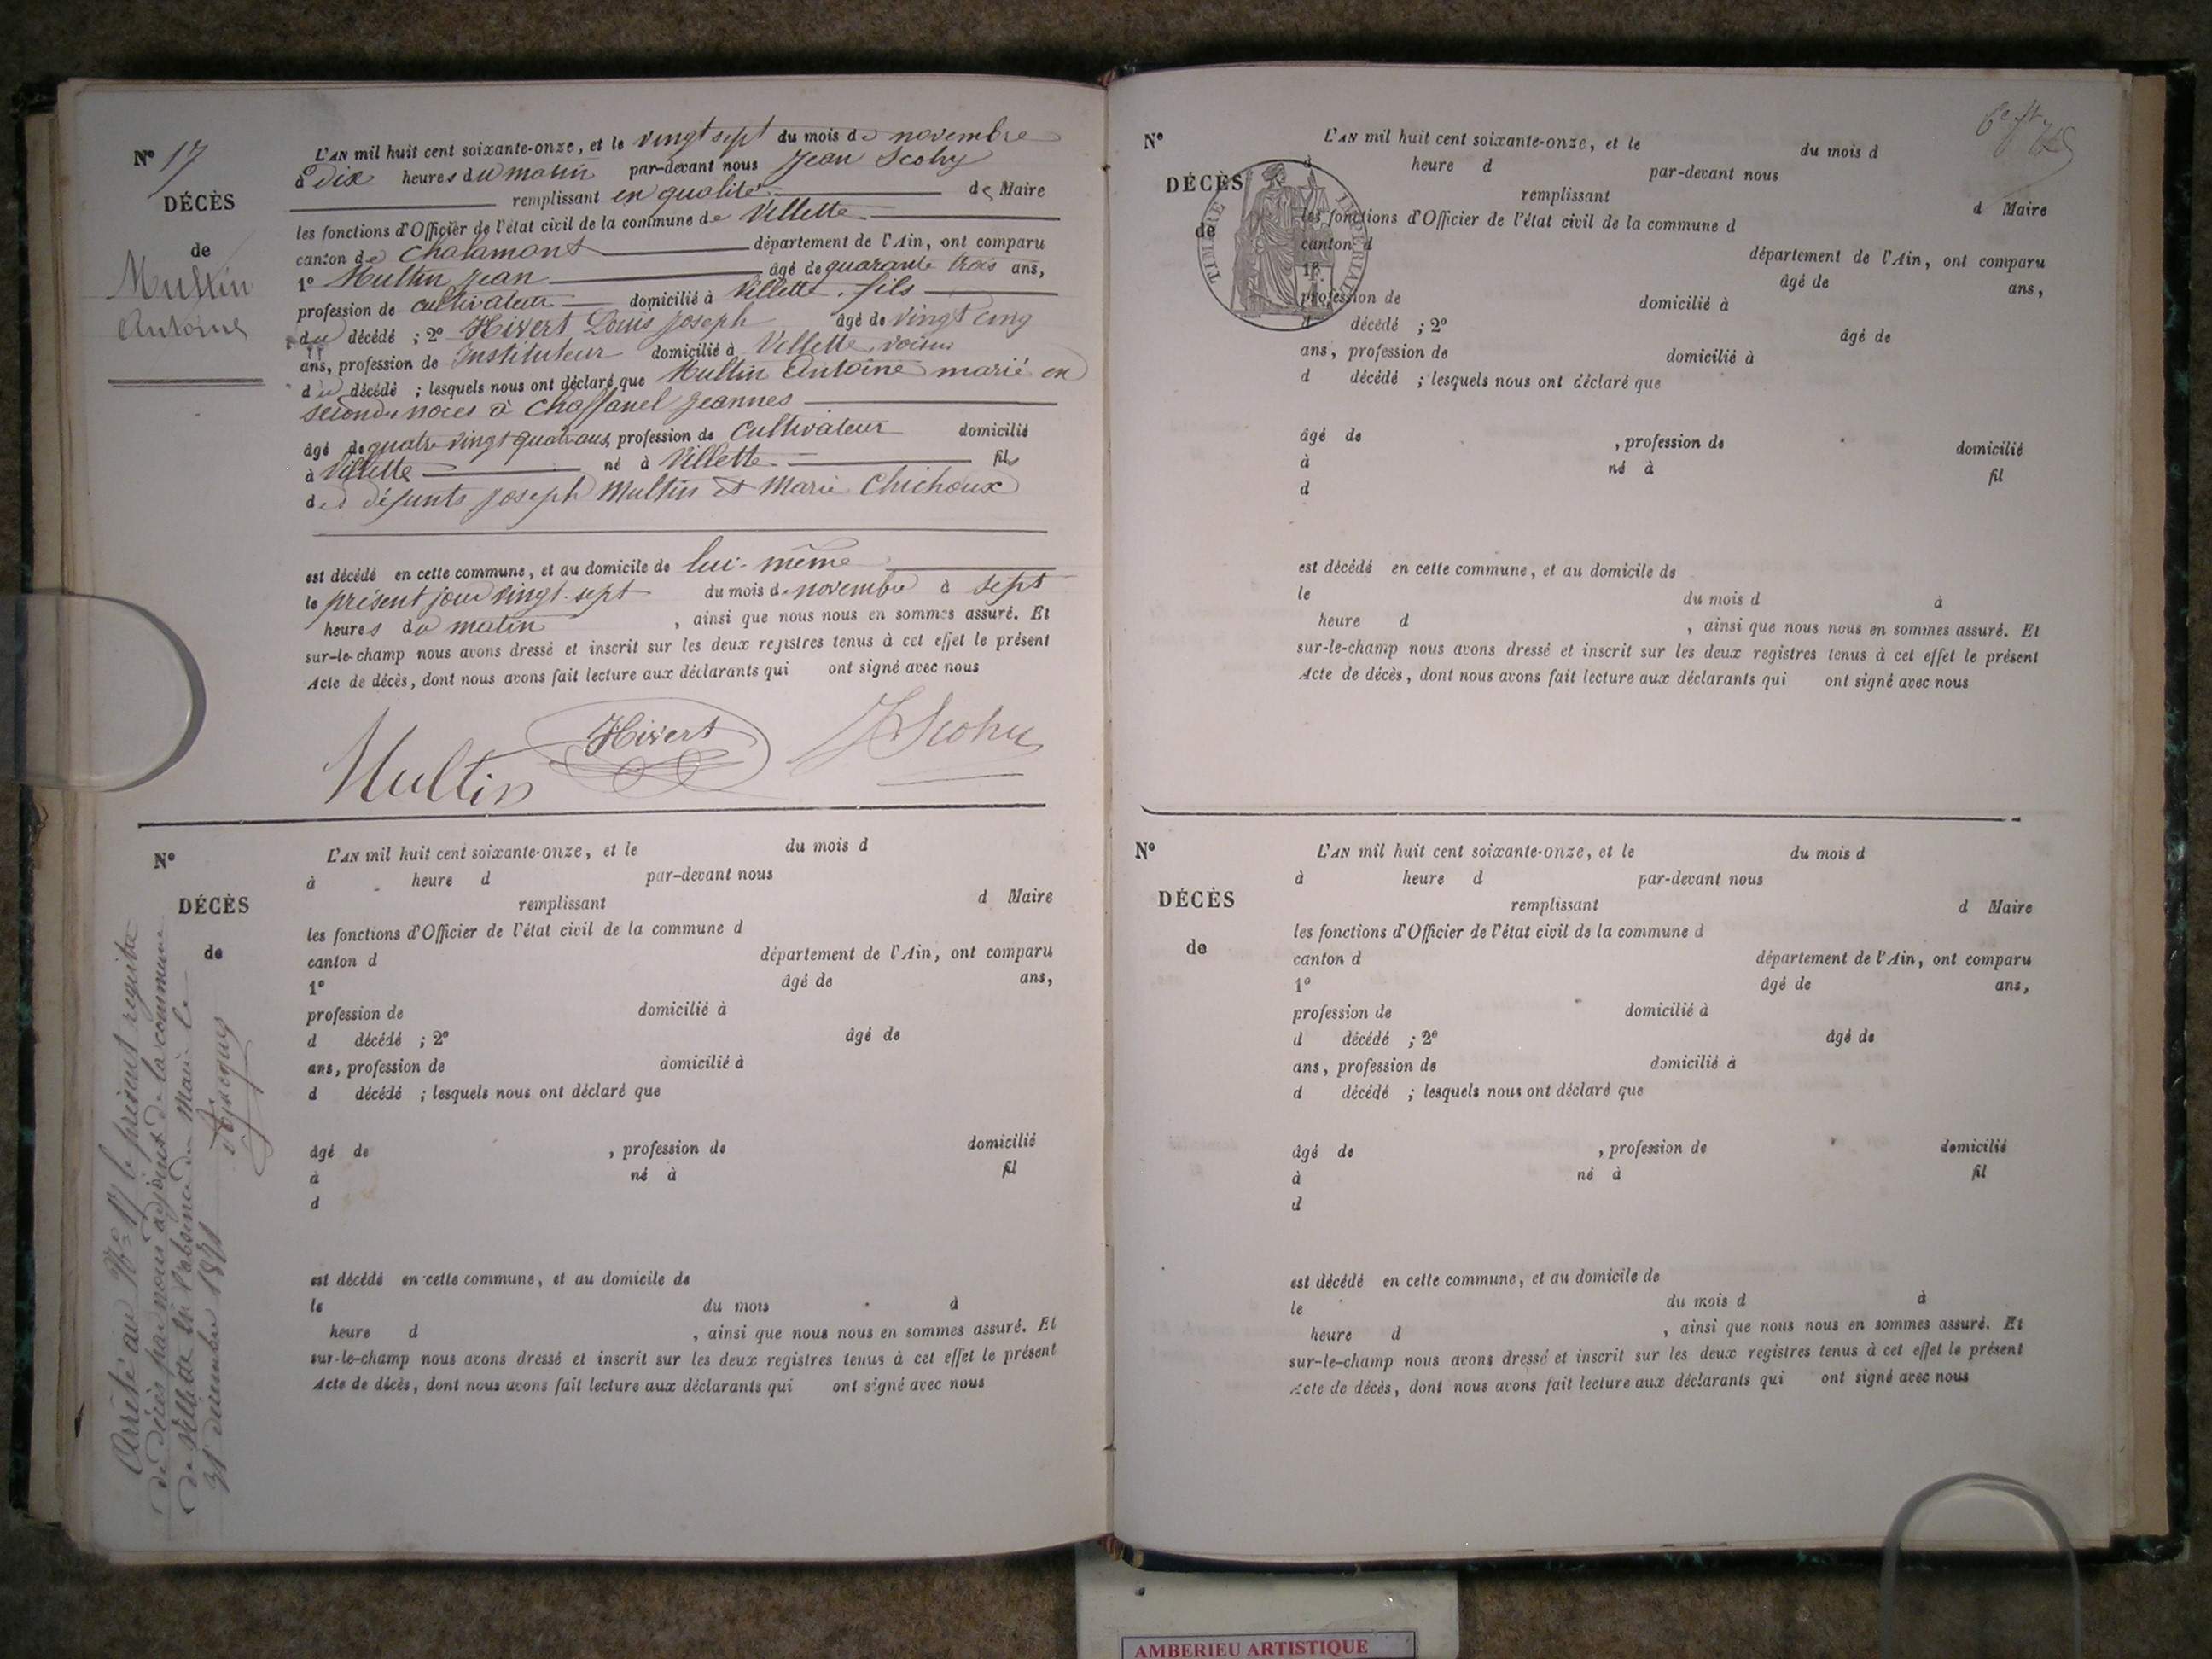 N° 17
DÉCÈS
de
Multin
Antoine
L'AN mil huit cent soixante-onze, et le vingt sept du mois de novembre
à dix heures du matin par-devant nous Jean Scohy
remplissant en qualité de Maire
les fonctions d'Officier de l'état civil de la commune de Villette
canton de Chalamont département de l'Ain, ont comparu
1° Multin Jean âgé de quarante trois ans,
profession de cultivateur domicilié à Villette, fils
du décédé ; 2° Hivert Louis Joseph âgé de vingt cinq
ans, profession de Instituteur domicilié à Villette, voisin
du décédé ; lesquels nous ont déclaré que Multin Antoine marié en
secondes noces à Chaffanel Jeannes
âgé de quatre vingt quatre ans, profession de cultivateur domicilié
à Villette né à Villette fils
des défunts Joseph Multin et Marie Chichoux
est décédé en cette commune, et au domicile de lui-même
le présent jour vingt-sept du mois de novembre à sept
heures du matin, ainsi que nous nous en sommes assuré. Et
sur-le-champ nous avons dressé et inscrit sur les deux registres tenus à cet effet le présent
Acte de décès, dont nous avons fait lecture aux déclarants qui ont signé avec nous
Multin Hivert J Scohy
N°
DÉCÈS
de
L'AN mil huit cent soixante-onze, et le du mois d
à heure d par-devant nous
remplissant d Maire
les fonctions d'Officier de l'état civil de la commune d
canton d département de l'Ain, ont comparu
1° âgé de ans,
profession de domicilié à
d décédé ; 2° âgé de
ans, profession de domicilié à
d décédé ; lesquels nous ont déclaré que
âgé de , profession de domicilié
à né à fil
d
est décédé en cette commune, et au domicile de
le du mois à
heure d , ainsi que nous nous en sommes assuré. Et
sur-le-champ nous avons dressé et inscrit sur les deux registres tenus à cet effet le présent
Acte de décès, dont nous avons fait lecture aux déclarants qui ont signé avec nous
Arrêté au N° 17 le présent registre
de décès par nous adjoint de la commune
de Villette en l'absence du Maire le
31 décembre 1871
N°
DÉCÈS
de
TIMBRE IMPERIAL
L'AN mil huit cent soixante-onze, et le du mois d
à heure d par-devant nous
remplissant d Maire
les fonctions d'Officier de l'état civil de la commune d
canton d département de l'Ain, ont comparu
1° âgé de ans,
profession de domicilié à
d décédé ; 2° âgé de
ans, profession de domicilié à
d décédé ; lesquels nous ont déclaré que
âgé de , profession de domicilié
à né à fil
d
est décédé en cette commune, et au domicile de
le du mois d à
heure d , ainsi que nous nous en sommes assuré. Et
sur-le-champ nous avons dressé et inscrit sur les deux registres tenus à cet effet le présent
Acte de décès, dont nous avons fait lecture aux déclarants qui ont signé avec nous
N°
DÉCÈS
de
L'AN mil huit cent soixante-onze, et le du mois d
à heure d par-devant nous
remplissant d Maire
les fonctions d'Officier de l'état civil de la commune d
canton d département de l'Ain, ont comparu
1° âgé de ans,
profession de domicilié à
d décédé ; 2° âgé de
ans, profession de domicilié à
d décédé ; lesquels nous ont déclaré que
âgé de , profession de domicilié
à né à fil
d
est décédé en cette commune, et au domicile de
le du mois d à
heure d , ainsi que nous nous en sommes assuré. Et
sur-le-champ nous avons dressé et inscrit sur les deux registres tenus à cet effet le présent
Acte de décès, dont nous avons fait lecture aux déclarants qui ont signé avec nous
AMBERIEU ARTISTIQUE